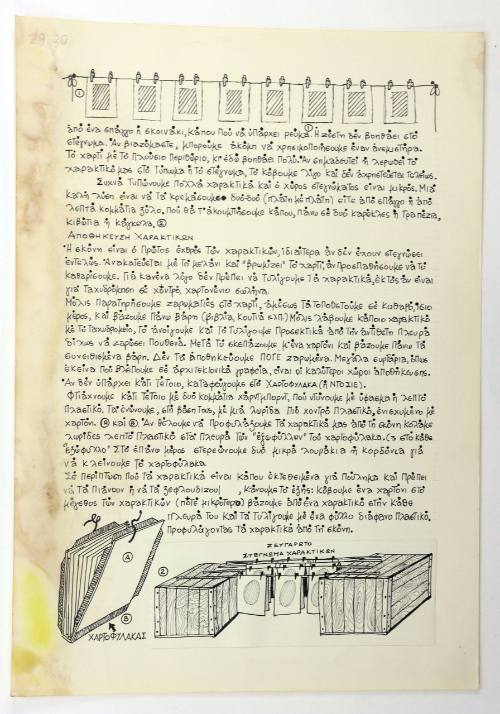 29-30
①
①
ἀπό ἕνα σπάγγο ἤ σκοινάκι, κάπου πού νά ὑπάρχει ρεῦμα. Ἡ ζέστη δέν βοηθάει στό
στέγνωμα. Ἄν βιαζόμαστε, μποροῦμε ἀκόμη νά χρησιμοποιήσουμε ἕναν ἀνεμιστήρα.
Τό χαρτί μέ τό πλούσιο περιθώριο, κι' ἐδῶ βοηθάει πολύ. Ἄν σημαδευτεῖ ἤ λερωθεῖ τό
χαρακτικό μας στό τύπωμα ἤ τό στέγνωμα, τό κόβουμε λίγο καί δέν ἀχρηστεύεται τελείως.
Συχνά τυπώνουμε πολλά χαρακτικά καί ὁ χῶρος στεγνώματος εἶναι μικρός. Μιά
καλή λύση εἶναι νά τά κρεμάσουμε δυό-δυό (πλάτη μέ πλάτη) εἴτε ἀπό σπάγγο ἤ ἀπό
λεπτά κομμάτια ξύλο. Πού θά τ' ἀκουμπήσουμε κάπου, πάνω σέ δυό καρέκλες ἤ τραπέζια,
κιβώτια ἤ κάγκελα. ②
ΑΠΟΘΗΚΕΥΣΗ ΧΑΡΑΚΤΙΚΩΝ
Ἡ σκόνη εἶναι ὁ πρῶτος ἐχθρός τῶν χαρακτικῶν, ἰδιαίτερα ἄν δέν ἔχουν στεγνώσει
ἐντελῶς. Ἀνακατεύεται μέ τό μελάνι καί "βρωμίζει" τό χαρτί, ἄν προσπαθήσουμε νά τό
καθαρίσουμε. Γιά κανένα λόγο δέν πρέπει νά τυλίγουμε τά χαρακτικά, ἐκτός ἄν εἶναι
γιά ταχυδρόμηση σέ χοντρό, χαρτονένιο σωλήνα.
Μόλις παρατηρήσουμε ζαρωματιές στό χαρτί, ἀμέσως τά τοποθετοῦμε σέ καθαρό, ἴσιο
μέρος, καί βάζουμε πάνω βάρη (βιβλία, κουτιά κ.λπ.) Μόλις λάβουμε κάποιο χαρακτικό
μέ τό ταχυδρομεῖο, τό ἀνοίγουμε καί τό τυλίγουμε προσεκτικά ἀπό τήν ἀντίθετη πλευρά
δίχως νά ζαρώσει πουθενά. Μετά τό σκεπάζουμε μ' ἕνα χαρτόνι καί βάζουμε πάνω τά
συνειθισμένα βάρη. Δέν τά ἀποθηκεύουμε ΠΟΤΕ ζαρωμένα. Μεγάλα συρτάρια, ὅπως
ἐκεῖνα πού βλέπουμε σέ ἀρχιτεκτονικά γραφεῖα, εἶναι οἱ καλύτεροι χῶροι ἀποθήκευσης.
Ἄν δέν ὑπάρχει κάτι τέτοιο, καταφεύγουμε στό ΧΑΡΤΟΦΥΛΑΚΑ (ἤ ΝΤΟΣΙΕ).
Φτιάχνουμε κάτι τέτοιο μέ δυό κομμάτια χάρντμπορντ, πού ντύνουμε μέ ὕφασμα ἤ λεπτό
πλαστικό. Τά ἑνώνουμε, στή βάση τους, μέ μιά λωρίδα πιό χοντρό πλαστικό, ἐνισχυμένο μέ
χαρτόνι. Ⓐ καί Ⓑ. Ἄν θέλουμε νά προφυλάξουμε τά χαρακτικά μας ἀπό τή σκόνη κολλᾶμε
λωρίδες λεπτό πλαστικό στά πλευρά τῶν "ἐξωφύλλων" τοῦ χαρτοφύλακα. (3 στό κάθε
"ἐξώφυλλο" Στό ἐπάνω μέρος στερεώνουμε δυό μικρά λουράκια ἤ κορδόνια γιά
νά κλείνουμε τό χαρτοφύλακα
Σέ περίπτωση πού τά χαρακτικά εἶναι κάπου ἐκτεθειμένα γιά πούλημα καί πρέπει
νά τά πιάνουν ἤ νά τά ξεφυλλίζουν, κάνουμε τό ἑξῆς: Κόβουμε ἕνα χαρτόνι στό
μέγεθος τῶν χαρακτικῶν (ποτέ μικρότερο) βάζουμε ἀπό ἕνα χαρακτικό στήν κάθε
πλευρά του καί τά τυλίγουμε μέ ἕνα φύλλο διάφανο πλαστικό,
προφυλάγοντας τά χαρακτικά ἀπό τή σκόνη.
ΖΕΥΓΑΡΩΤΟ
ΣΤΕΓΝΩΜΑ ΧΑΡΑΚΤΙΚΩΝ
Ⓐ
②
Ⓑ
ΧΑΡΤΟΦΥΛΑΚΑΣ